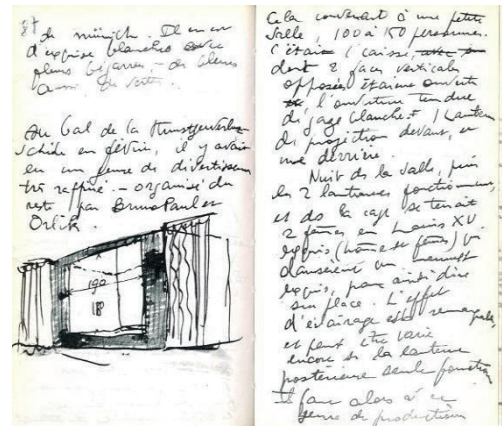 87
de münich. Il en est
d'exquise blanches avec
bleus bizarres, – des bleus
aussi des verts.
Au bal de la Kunstgewerbe
schule en février, il y avait
eu un genre de divertissement
très raffiné. – organisé du
reste par Bruno Paul et
Orlik.
190
Cela convenant à une petite
salle, 100 à 150 personnes.
C'était 1 caisse,
dont 2 faces verticales
opposées étaient ouvertes
l'ouverture tendue
de gaze blanche. 1 lanterne
de projection devant, et
une derrière.
Nuit ds la salle, puis
les 2 lanternes fonctionnent
et ds la cage se tenait
2 femmes en Louis XV
exquis (homme et femme) qui
dansèrent un menuet
exquis, pour ainsi dire
sur place. L'effet
d'éclairage est remarquable
et peut être varié
encore si la lanterne
postérieure seule fonctionne
Il faut alors à ce
genre de production